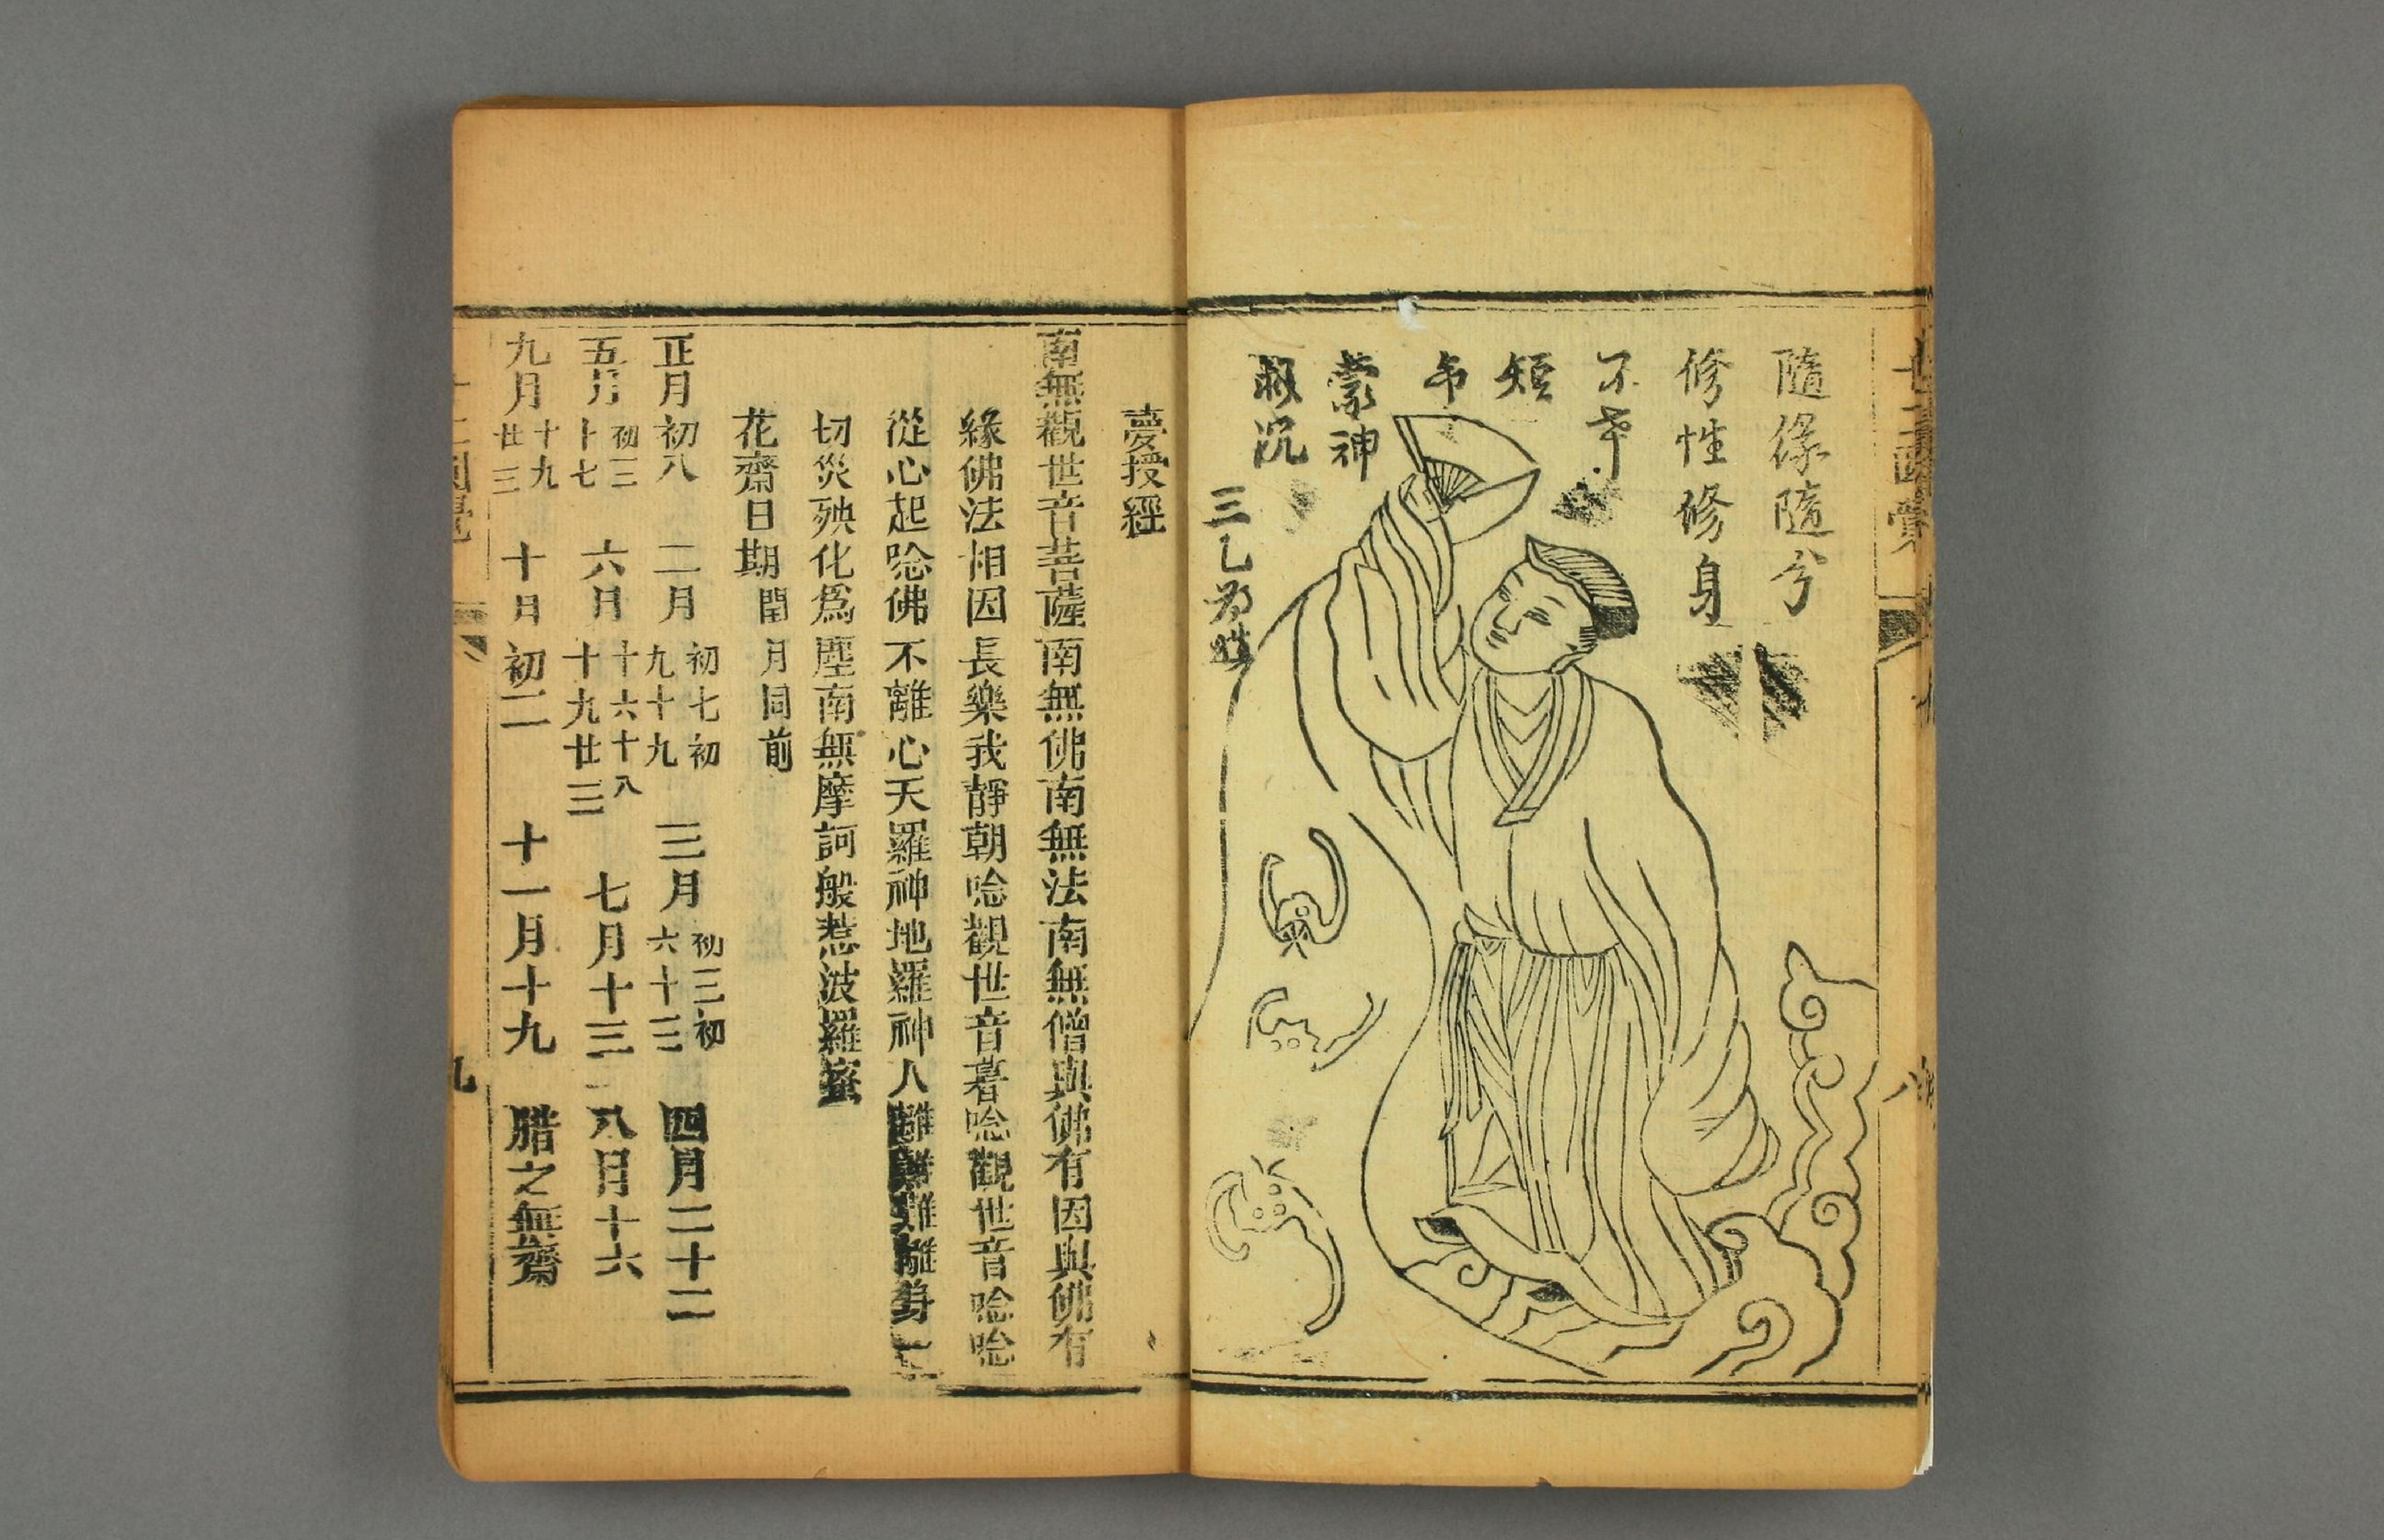 隨緣隨兮
修性修身
不幸
短
命
蒙神
救沉
夢授經
南無觀世音菩薩南無佛南無法南無僧與佛有因與佛有
緣佛法相因長樂我靜朝唸觀世音暮唸觀世音唸唸
從心起唸佛不離心天羅神地羅神人離難難離身一
切災殃化爲塵南無摩訶般惹波羅蜜
花齋日期閏月同前
正月初八 二月初七初九十九 三月初三初六十三 四月二十二
五月初三十七 六月十六十八十九廿三 七月十三 八月十六
九月十九廿三 十月初二 十一月十九 腊之無齋
九